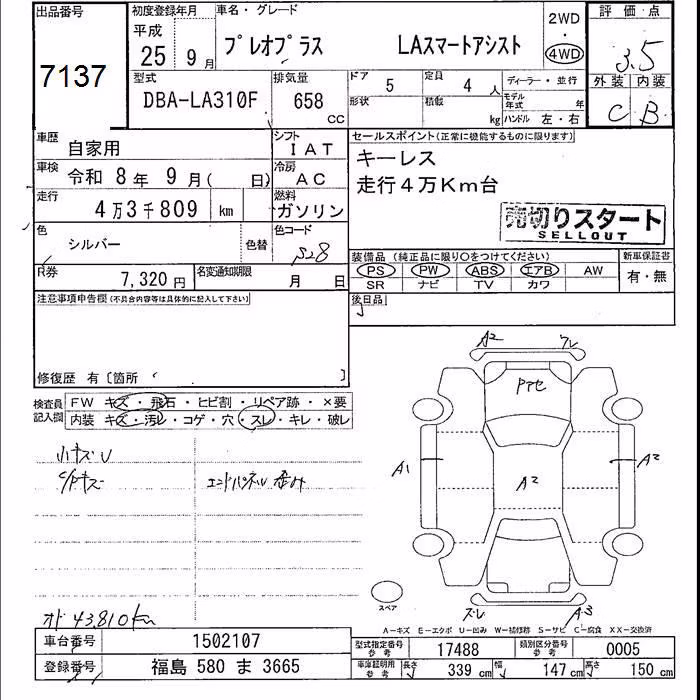 出品番号
7137
初度登録年月
平成
25 9月
車名・グレード
プレオプラス LAスマートアシスト
2WD
・
4WD
評価点
3.5
外装 内装
C B
型式
DBA-LA310F
排気量
658
CC
ドア 5
定員 4人
形状
積載 kg
ディーラー・並行
モデル年式 年
ハンドル 左・右
車歴
自家用
シフト
IAT
車検
令和 8年 9月( 日)
冷房
AC
走行
4万3千809 km
燃料
ガソリン
色
シルバー
色替
色コード
S28
R券
7,320円
名変通知期限
月 日
セールスポイント(正常に機能するものに限ります)
キーレス
走行4万Km台
売切りスタート
SELLOUT
装備品(純正品に限り○をつけてください)
PS PW ABS エアB AW
SR ナビ TV カワ
新車保証書
有・無
後日品
注意事項申告欄(不具合内容等は具体的に記入して下さい)
修復歴 有〔箇所 〕
検査員記入欄
FW キズ・飛石・ヒビ割・リペア跡・×要
内装 キズ・汚レ・コゲ・穴・スレ・キレ・破レ
小キズU
エンドパネル歪み
オド 43,810km
A2
A1
A2
A2
A3
スペア
A-キズ E-エクボ U-凹み W-補修跡 S-サビ C-腐食 XX-交換済
車台番号 1502107
登録番号 福島 580 ま 3665
型式指定番号 参考 17488
類別区分番号 参考 0005
車庫証明用 参考 長さ 339cm 幅 147cm 高さ 150cm